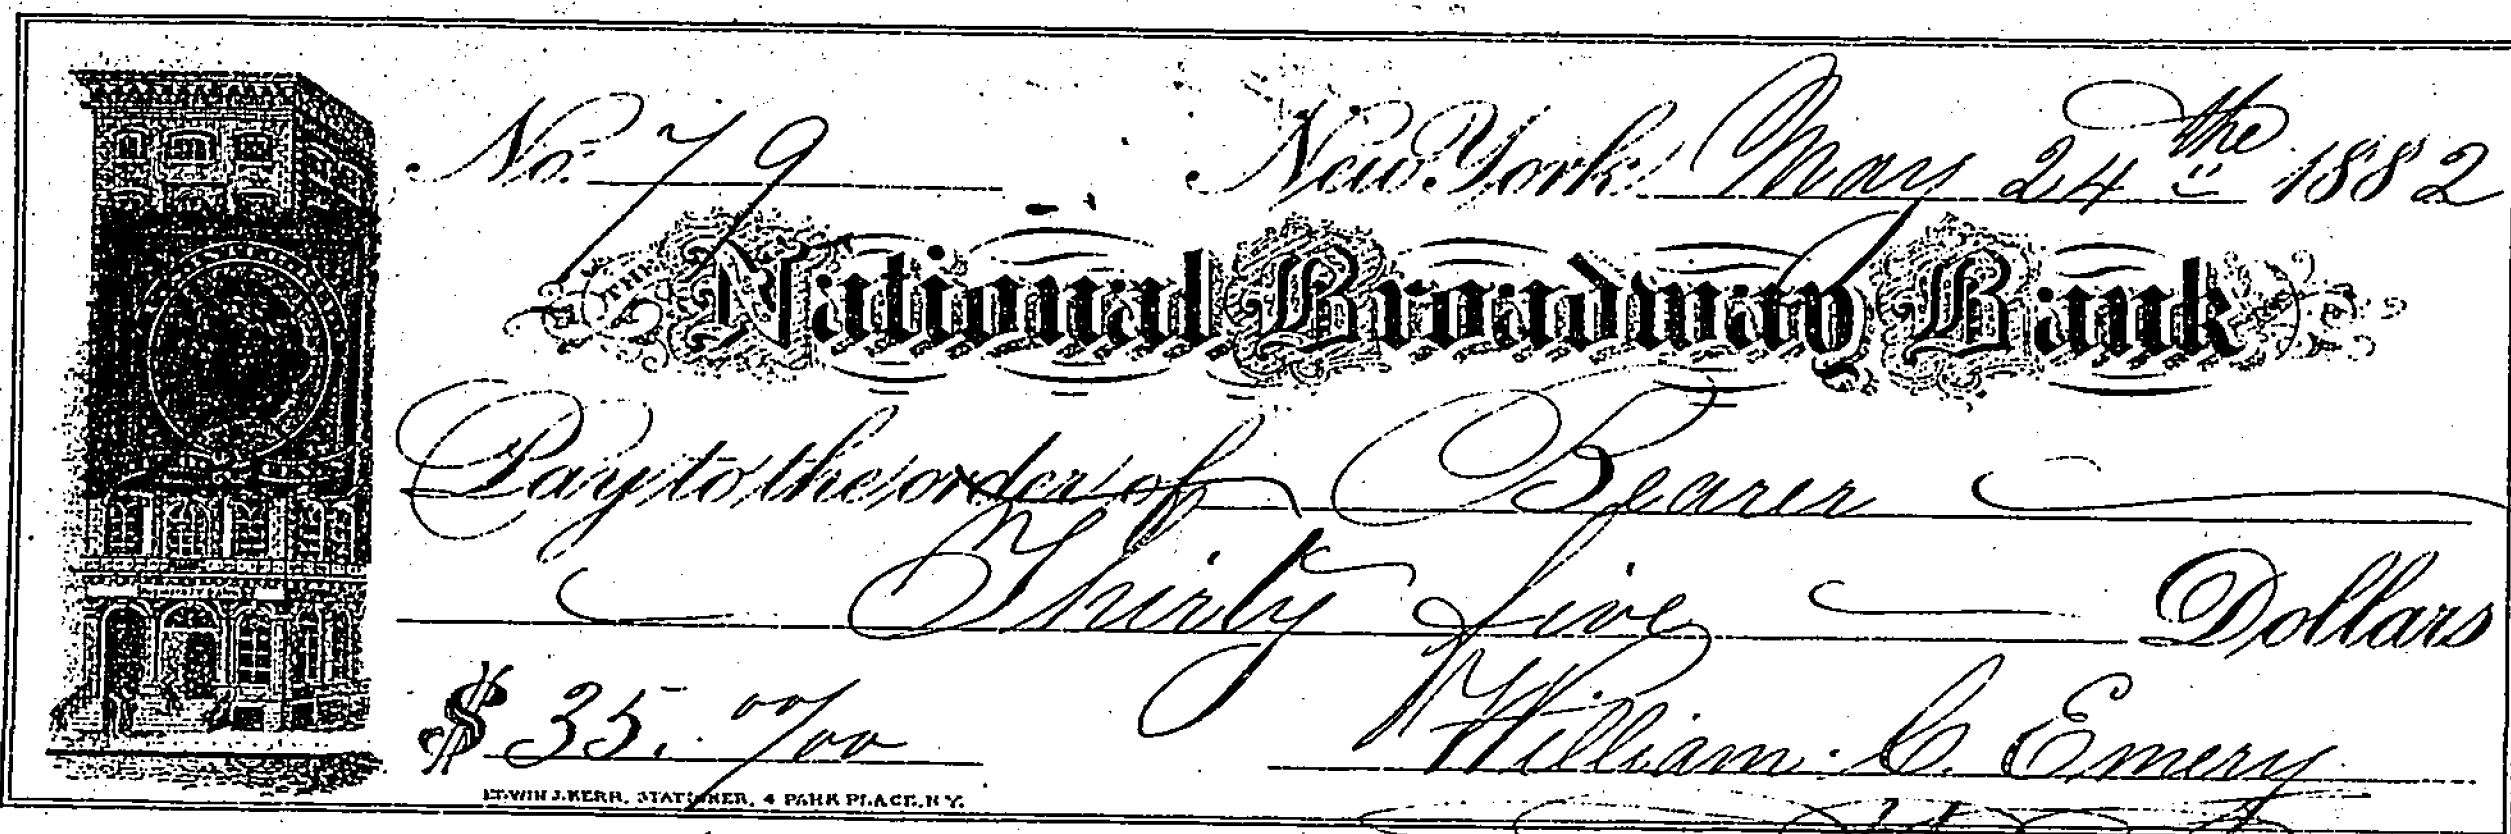 No. 79 New York May 24the 1882
THE National Broadway Bank
Pay to the order of Bearer
Thirty five Dollars
$35.00/00 William C. Emery
EDWIN J. KERR, STATIONER, 4 PARK PLACE, N.Y.